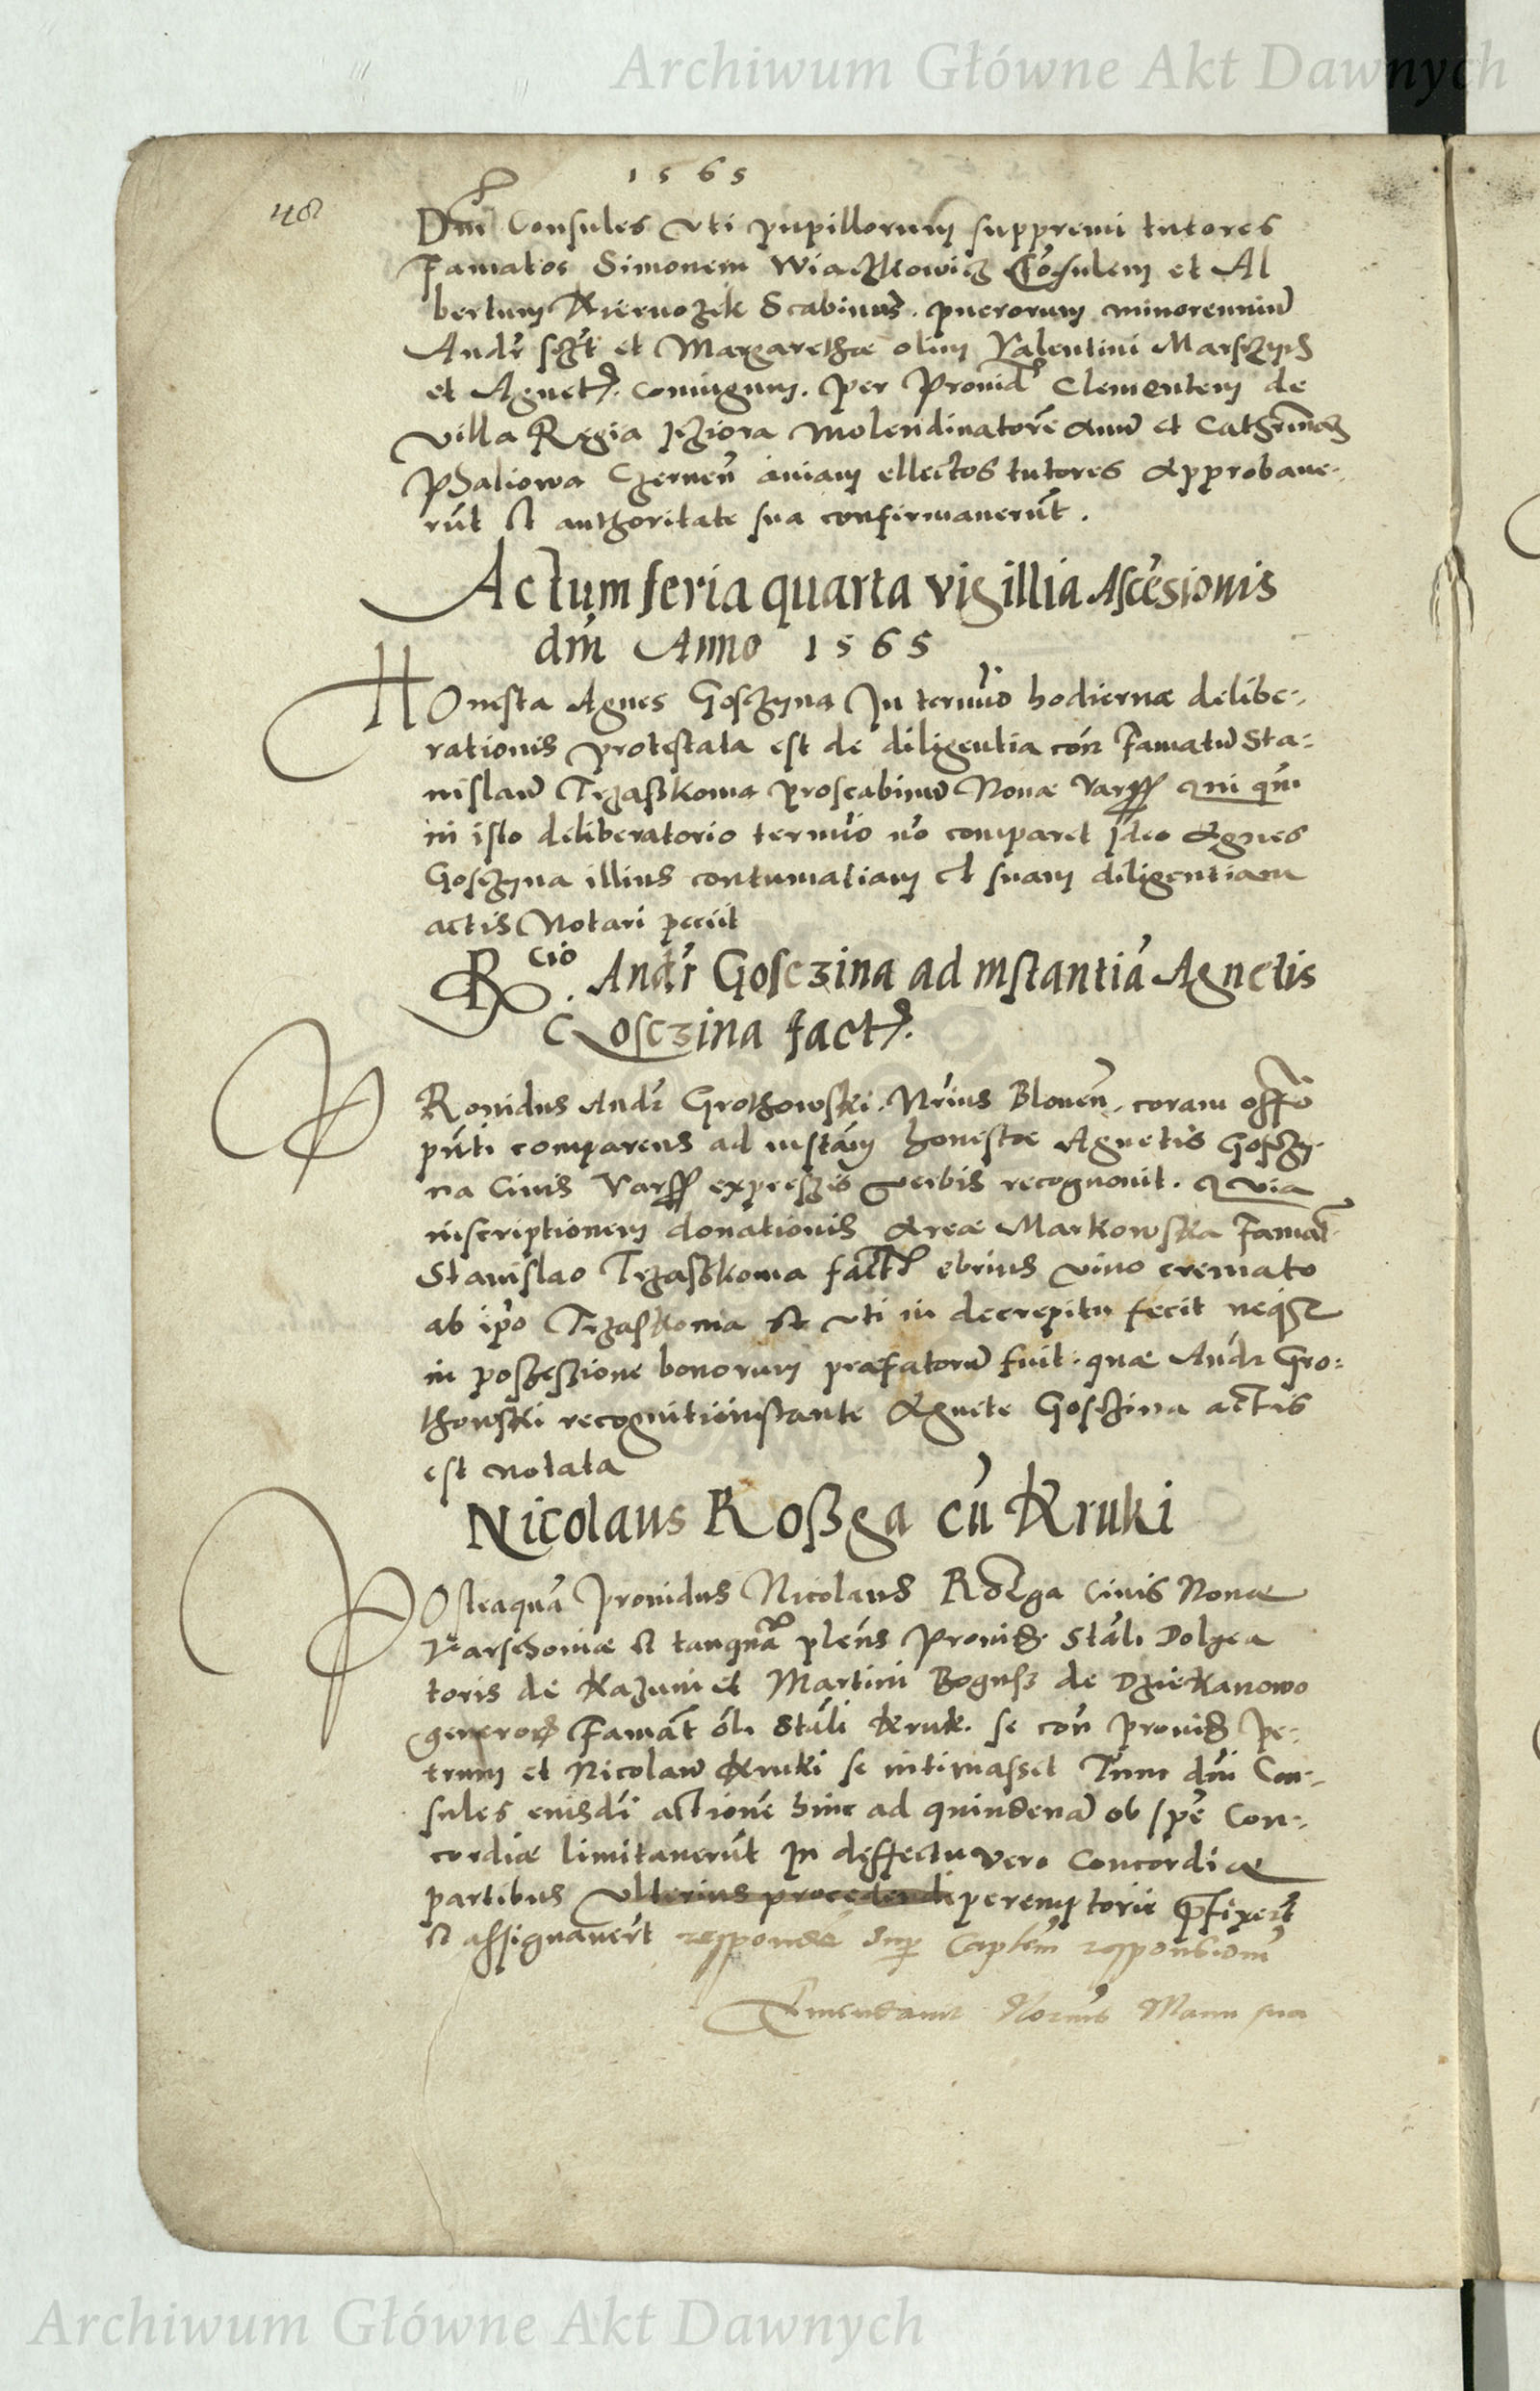 Archiwum Główne Akt Dawnych
1565
48
Dni Consules uti pupillorum suppremi tutores
Famatos Simonem Wiaczkowicz Cōsulem et Al
bertum Kiernozek Scabinus. puerorum minorennium
Andr̄ et Margarethæ olim Valentini Marsczysz
et Agnet. coniugum. per Provid. Clementem de
villa Regia Jeziora Molendinatorē avum et Catherinam
Czernen aviam ellectos tutores Approbave-
rūt et authoritate sua confirmaverūt.
Actum feria quarta vigillia Ascēsionis
dni Anno 1565
HOnesta Agnes Gosczyna In termīo hodiernæ delibe-
rationis protestata est de diligentia con Famatū Sta-
nislaū Trzaskoma proscabinū Novæ Vars qui qm
in isto deliberatorio termīo nō comparet Ideo Agnes
Gosczyna illius contumatiam et suam diligentiam
actis Notari peciit
Rcio. Andr̄ Gosczina ad instantiā Agnetis
Gosczina fact.
PRovidus Andr̄ Grothowski. Nrius Blonen. coram offo
pnti comparens ad instām honestæ Agnetis Goszczy-
na Civis Vars expressis verbis recognovit. quia
inscriptionem donationis Areæ Markowska Famat.
Stanislao Trzaskoma fact. ebrius vino cremato
ab ipo Trzaskoma et uti in decrepitu fecit neqz
in possessione bonorum præfatorū fuit. quæ Andr Gro-
thowski recognitio instante Agnete Gosczina actis
est notata
Nicolaus Roszga cū Kruki
POsteaquā Providus Nicolaus Rozga Civis Novæ
Varschoviæ et tanquā plens Provid. Stāli Dolga
toris de Kazuni et Martini Bogusz de Dziekanowo
generoz Famāt olī Stāli Kruk. se con provid Pe-
trum et Nicolaū Kruki se intimasset Tunc dni Con-
sules euisdī actionē hinc ad quindenā ob spē Con-
cordiæ limitaverūt In deffectu vero Concordiæ
partibus ulterius procedendi peremptorie pfixert
et assignavert respondē Sup Caplēm responsionū
Emendavit Norius Manu sua
Archiwum Główne Akt Dawnych